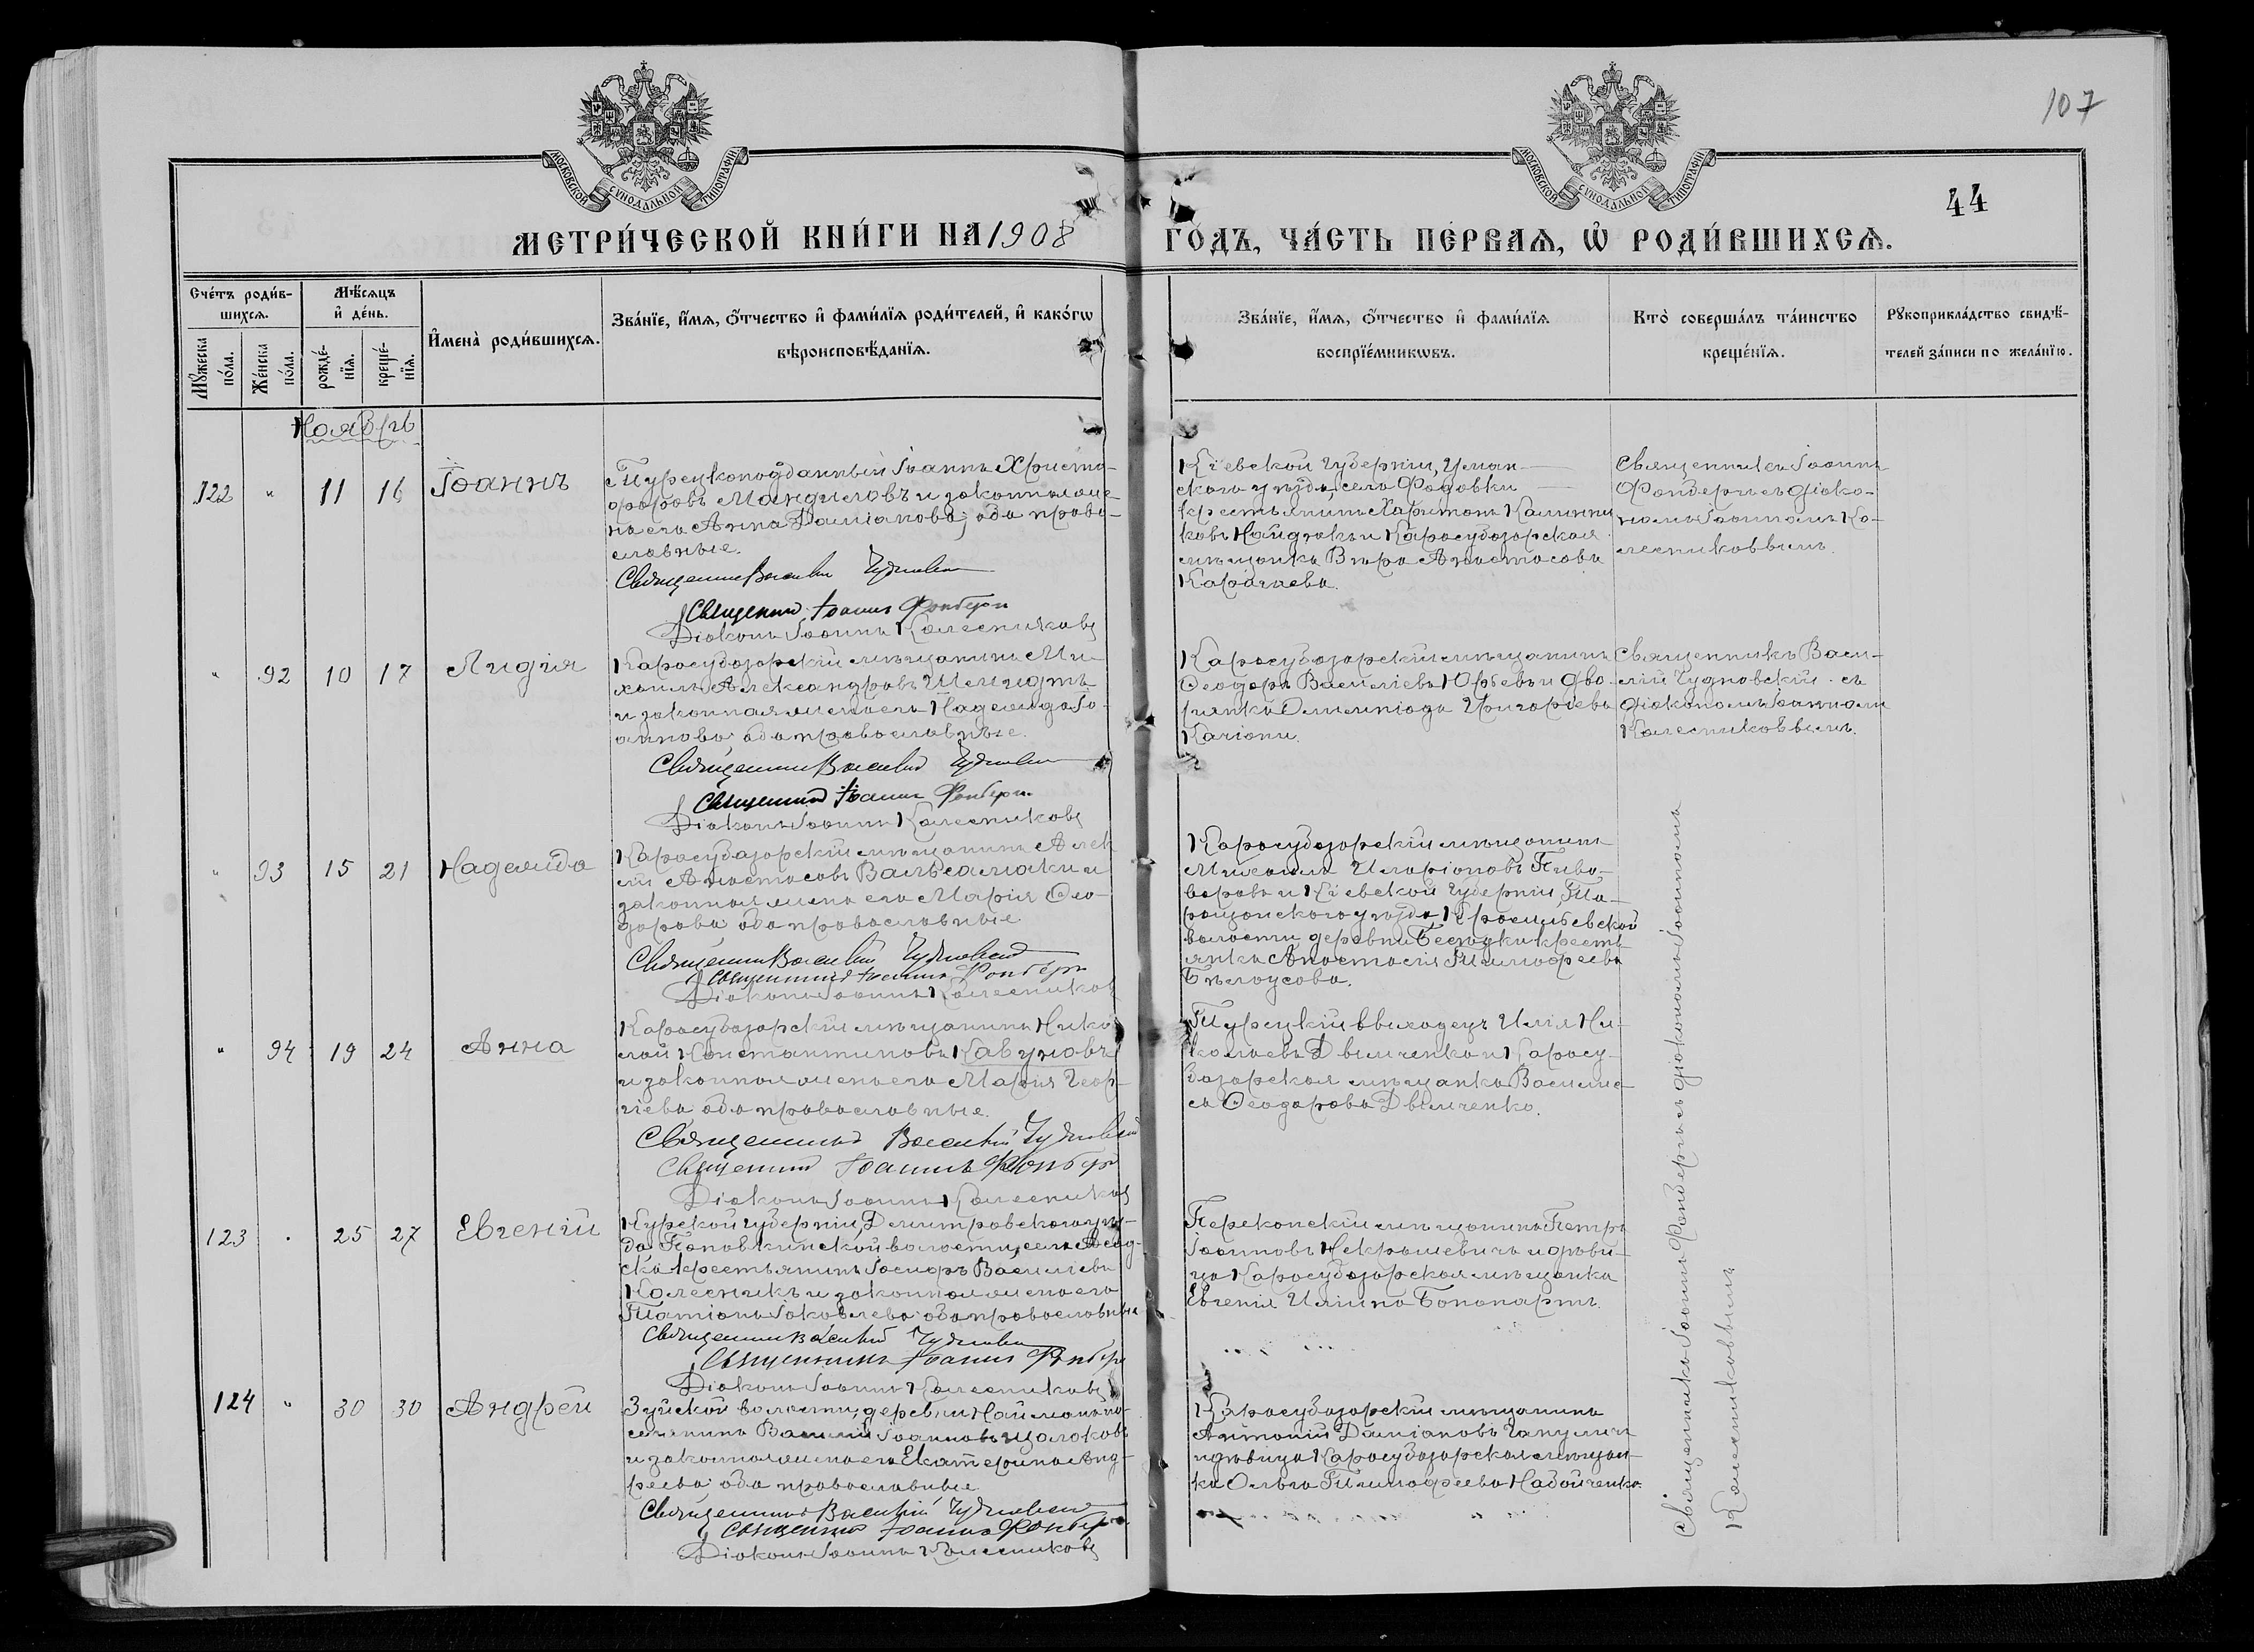 107
44
МОСКОВСКОЙ СѴНОДАЛЬНОЙ ТИПОГРАФІИ
МОСКОВСКОЙ СѴНОДАЛЬНОЙ ТИПОГРАФІИ
МЕТРИ́ЧЕСКОЙ КНИ́ГИ НА 1908 ГО́ДЪ, ЧА́СТЬ ПЕ́РВАЯ, Ѡ҆ РОДИ́ВШИХСѦ.
Сче́тъ роди́в-
шихсѧ.
Мꙋ́жеска по́ла.
Же́нска по́ла.
Мѣ́сяцъ
и҆ де́нь.
рожде́-
нїѧ.
креще́-
нїѧ.
И҆мена̀ роди́вшихсѧ.
Зва́нїе, и҆́мѧ, ѻ҆́тчество и҆ фами́лїѧ роди́телей, и҆ како́гѡ
вѣроисповѣ́данїѧ.
Зва́нїе, и҆́мѧ, ѻ҆́тчество и҆ фами́лїѧ
воспрїе́мникѡвъ.
Кто̀ соверша́лъ та́инство
креще́нїѧ.
Рꙋкоприкла́дство свидѣ́-
телей за́писи по жела́нїю.
Ноябрь
122 " 11 16 Іоаннъ
Турецкоподданный Іоаннъ Христо-
форовъ Мандиловъ и законная же-
на его Анна Даміанова; оба право-
славные.
Священникъ Василій Чудновскій
Священникъ Іоаннъ Фондерг
Діаконъ Іоаннъ Колесниковъ
Кіевской губерніи, Уман-
скаго уѣзда, села
крестьянинъ Харитонъ Калинни
ковъ Найдюкъ и Карасубазарская
мѣщанка Вѣра Анастасова
Карачаева.
Священникъ Іоаннъ
Фондергъ съ діако-
номъ Іоанномъ Ко-
лесниковымъ.
" 92 10 17 Лидія
Карасубазарскій мѣщанинъ Ми-
хаилъ Александровъ
и законная жена его Надежда Іо-
аннова; оба православные.
Священникъ Василій Чудновскій
Священникъ Іоаннъ Фондерг
Діаконъ Іоаннъ Колесниковъ
Карасубазарскій мѣщанинъ
Ѳеодоръ Василіевъ Юрьевъ и дво-
рянка Олимпіада Григоріева
Каріони.
Священникъ Васи-
лій Чудновскій съ
діакономъ Іоанномъ
Колесниковымъ.
" 93 15 21 Надежда
Карасубазарскій мѣщанинъ Алек
сій Анастасовъ Вальсамаки и
законная жена его Марія Ѳео-
дорова; оба православные
Священникъ Василій Чудновскій
Священникъ Іоаннъ Фондерг
Діаконъ Іоаннъ Колесниковъ
Карасубазарскій мѣщанинъ
Михаилъ Иларіоновъ Пиво-
варовъ и Кіевской губерніи, Та-
ращанскаго уѣзда,
волости деревни Бесѣдки кресть-
янка Анастасія Тимофеева
Бѣлоусова.
" 94 19 24 Анна
Карасубазарскій мѣщанинъ Нико
лай Константиновъ Кавуновъ
и законная жена его Марія Геор-
гіева оба православные.
Священникъ Василій Чудновскій
Священникъ Іоаннъ Фондерг
Діаконъ Іоаннъ Колесниковъ
Турецкій выходецъ Илія Ни-
колаевъ Дьяченко и Карасу-
базарская мѣщанка Васили-
са Ѳеодорова Дьяченко.
123 " 25 27 Евгеній
Курской губерніи, Дмитровскаго уѣз-
да Поповкинской волости, села
крестьянинъ Іосифъ Василіевъ
Колесникъ и законная жена его
Татіана Іаковлева оба православные
Священникъ Василій Чудновскій
Священникъ Іоаннъ Фондерг
Діаконъ Іоаннъ Колесниковъ
Перекопскій мѣщанинъ Петръ
Іоанновъ Некрашевичъ и дѣви-
ца Карасубазарская мѣщанка
Евгенія Иліина Бонопартъ.
124 " 30 30 Андрей
Зуйской волости, деревни Найман по-
селянинъ Василій Іоанновъ
и законная жена его Екатерина Анд-
реева; оба православные
Священникъ Василій Чудновскій
Священникъ Іоаннъ Фондерг
Діаконъ Іоаннъ Колесниковъ
Карасубазарскій мѣщанинъ
Антоній Даміановъ
и дѣвица Карасубазарская мѣщан-
ка Ольга Тимофеева Набойченко.
Священникъ Іоаннъ Фондергъ съ діакономъ Іоанномъ
Колесниковымъ